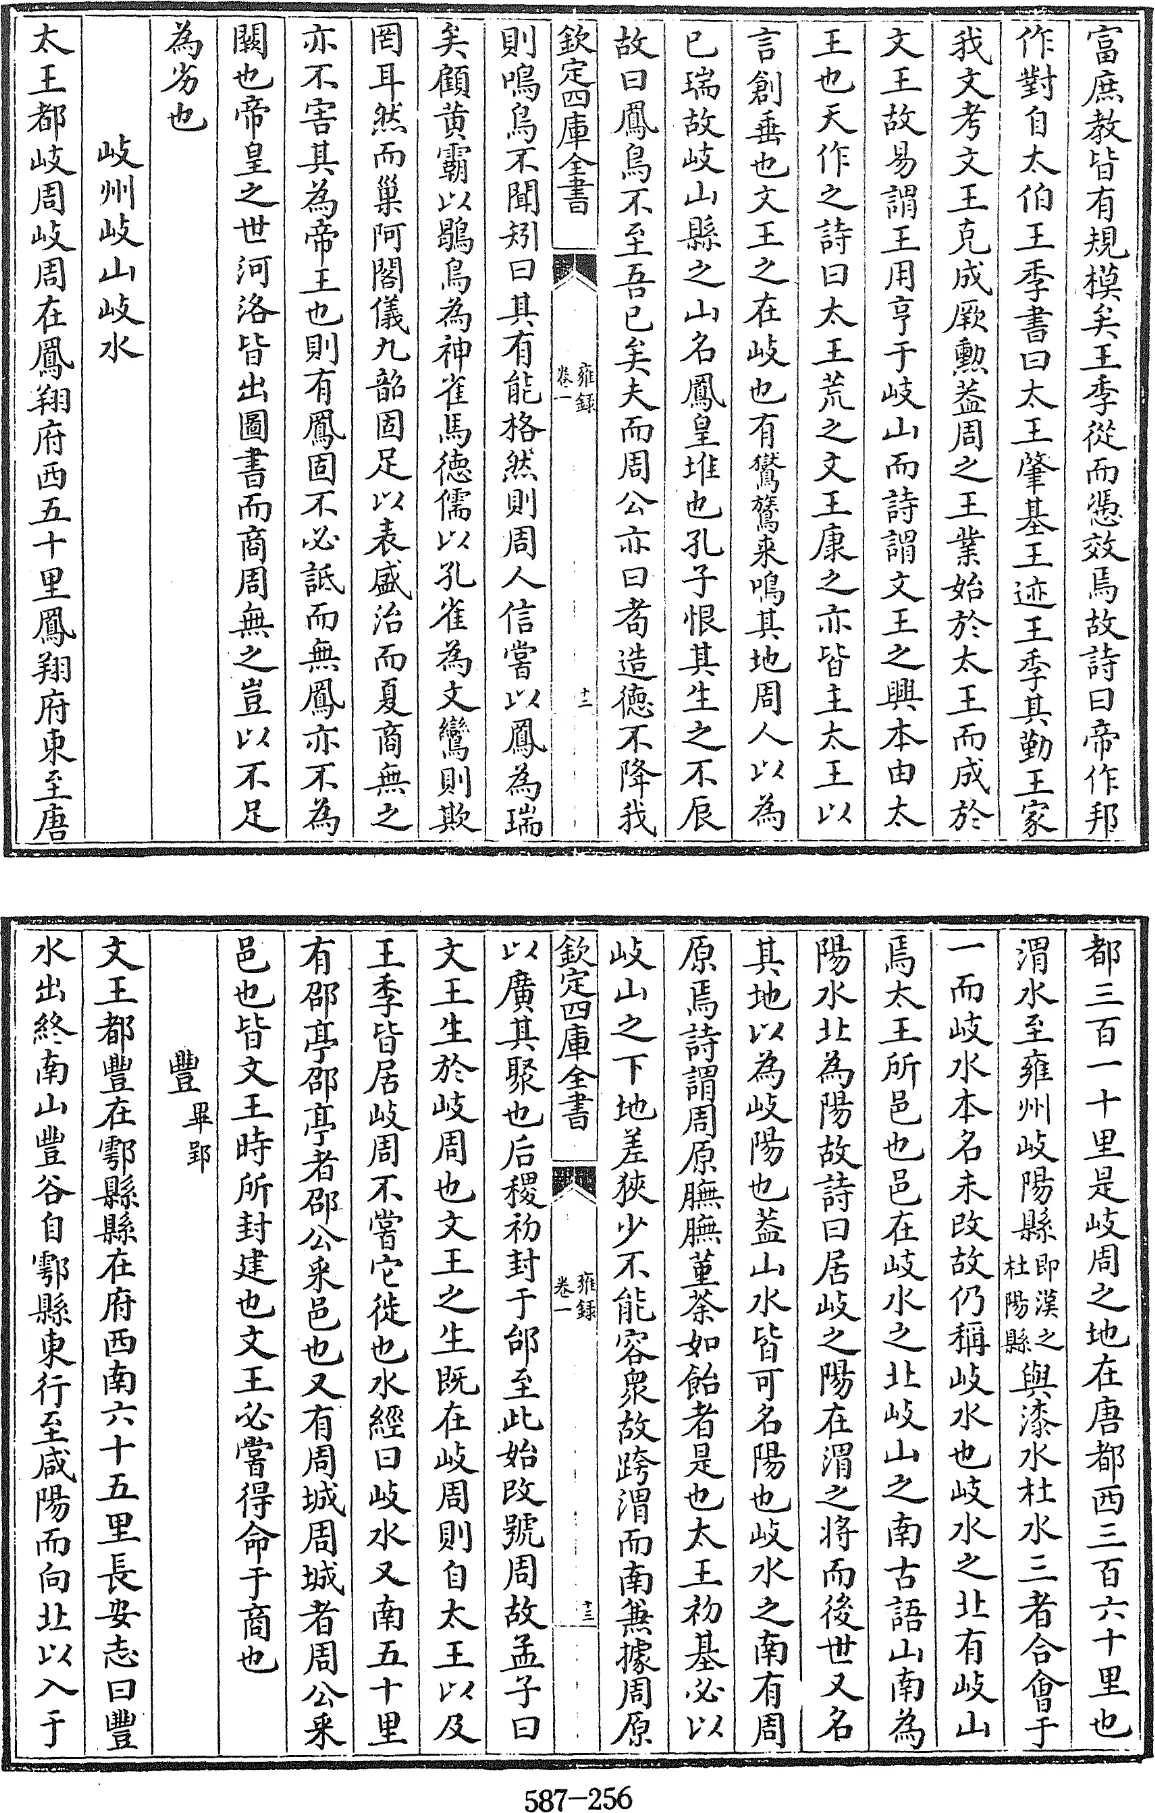 富庶教皆有規模矣王季從而憑效焉故詩曰帝作邦
作對自太伯王季書曰太王肇基王迹王季其勤王家
我文考文王克成厥勲葢周之王業始於太王而成於
文王故易謂王用亨于岐山而詩謂文王之興本由太
王也天作之詩曰太王荒之文王康之亦皆主太王以
言創垂也文王之在岐也有鸑鷟来鳴其地周人以為
己瑞故岐山縣之山名鳳皇堆也孔子恨其生之不辰
故曰鳳鳥不至吾已矣夫而周公亦曰耇造德不降我
欽定四庫全書
雍録
卷一
十二
則鳴鳥不聞矧曰其有能格然則周人信嘗以鳳為瑞
矣顧黄霸以鶡鳥為神雀馬德儒以孔雀為文鸞則欺
罔耳然而巢阿閣儀九韶固足以表盛治而夏商無之
亦不害其為帝王也則有鳳固不必詆而無鳳亦不為
闕也帝皇之世河洛皆出圖書而商周無之豈以不足
為劣也
岐州岐山岐水
太王都岐周岐周在鳳翔府西五十里鳳翔府東至唐
都三百一十里是岐周之地在唐都西三百六十里也
渭水至雍州岐陽縣即漢之杜陽縣與漆水杜水三者合會于
一而岐水本名未改故仍稱岐水也岐水之北有岐山
焉太王所邑也邑在岐水之北岐山之南古語山南為
陽水北為陽故詩曰居岐之陽在渭之將而後世又名
其地以為岐陽也葢山水皆可名陽也岐水之南有周
原焉詩謂周原膴膴菫荼如飴者是也太王初基必以
岐山之下地差狹少不能容衆故跨渭而南兼據周原
欽定四庫全書
雍録
卷一
十三
以廣其聚也后稷初封于邰至此始改號周故孟子曰
文王生於岐周也文王之生既在岐周則自太王以及
王季皆居岐周不嘗它徙也水經曰岐水又南五十里
有邵亭邵亭者邵公采邑也又有周城周城者周公采
邑也皆文王時所封建也文王必嘗得命于商也
豐畢郢
文王都豐在鄠縣縣在府西南六十五里長安志曰豐
水出終南山豐谷自鄠縣東行至咸陽而向北以入于
587—256